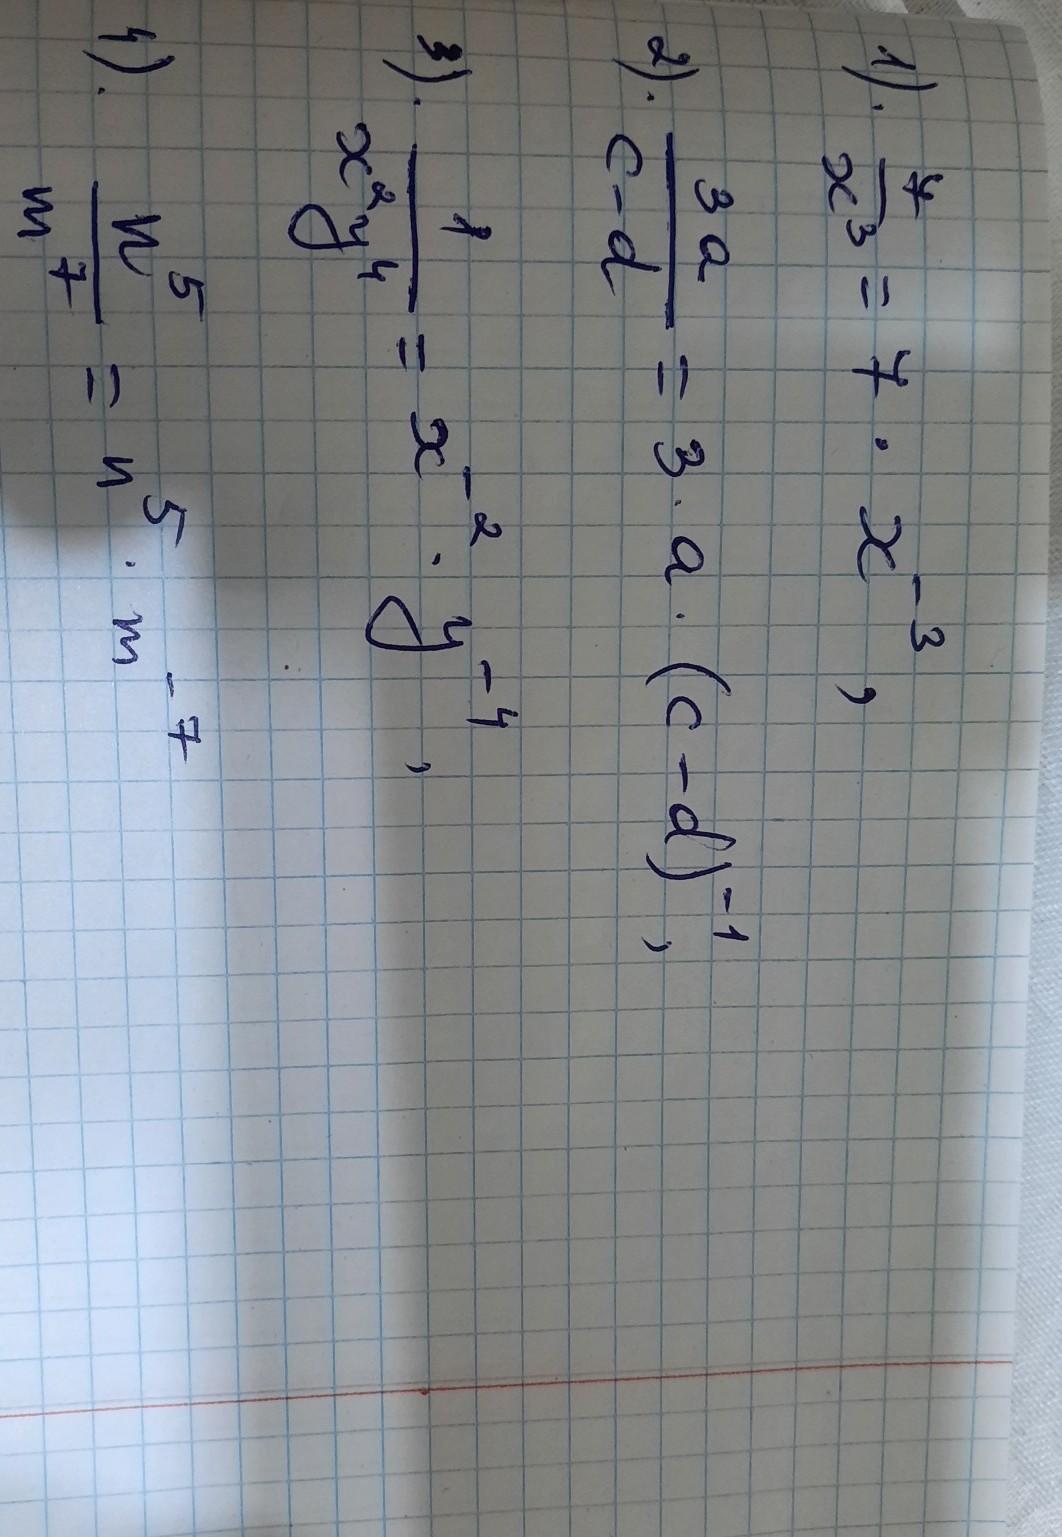 1). 7/x³ = 7 · x⁻³,
2). 3a/(c-d) = 3 · a · (c-d)⁻¹,
3). 1/(x²y⁴) = x⁻² · y⁻⁴,
4). n⁵/m⁷ = n⁵ · m⁻⁷